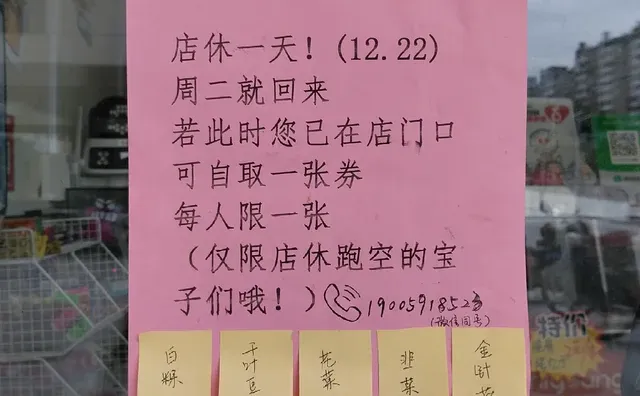 店休一天！(12.22)
周二就回来
若此时您已在店门口
可自取一张券
每人限一张
（仅限店休跑空的宝
子们哦！）
(微信同号)
白粿
千叶豆
花菜
韭菜
金针
特价